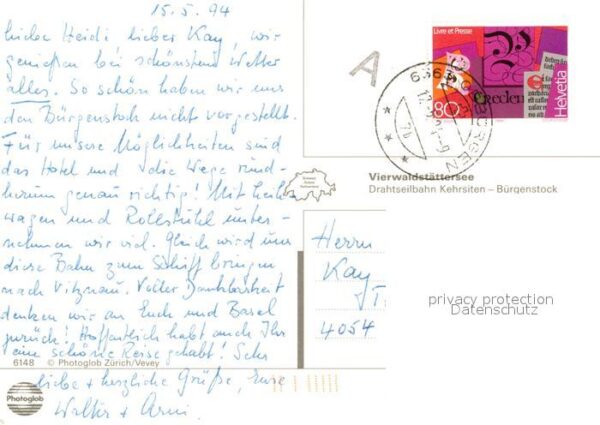 15.5.94
Liebe Heidi lieber Kay, wir
genießen bei schönstem Wetter
alles. So schön haben wir uns
den Bürgenstock nicht vorgestellt.
Für unsere Möglichkeiten sind
das Hotel und die Wege rund-
herum genau richtig! Mit
wagen und Rollstuhl unter-
nehmen wir viel. Gleich wird uns
diese Bahn zum Schiff bringen
nach Vitznau. Voller Dankbarkeit
denken wir an Euch und Basel
zurück! Hoffentlich habt auch Ihr
eine schöne Reise gehabt! Sehr
liebe + herzliche Grüße, Eure
Walter +
6148 © Photoglob Zürich/Vevey
Photoglob
Livre et Presse
80
Helvetia
A
6363
BÜRGEN
Vierwaldstättersee
Drahtseilbahn Kehrsiten – Bürgenstock
Herrn
Kay
4054
privacy protection
Datenschutz